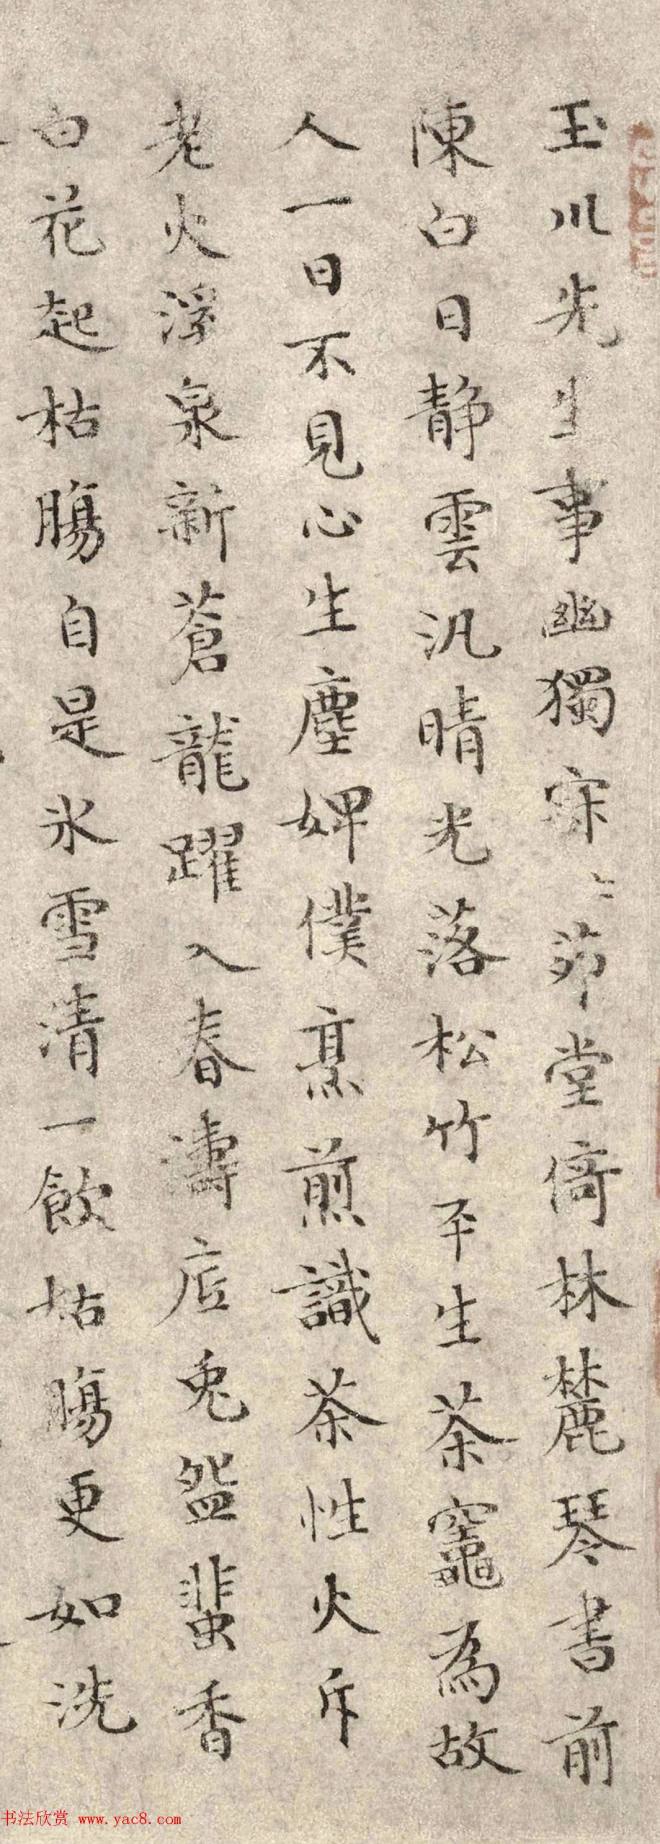 玉川先生事幽獨寂〻茆堂倚林麓琴書前
陳白日静雲汎晴光落松竹平生茶竈為故
人一日不見心生塵婢僕烹煎識茶性火斥
老火浮泉新蒼龍躍入春濤底兎盌蜚香
白花起枯腸自是氷雪清一飲枯腸更如洗
书法欣赏 www.yac8.com